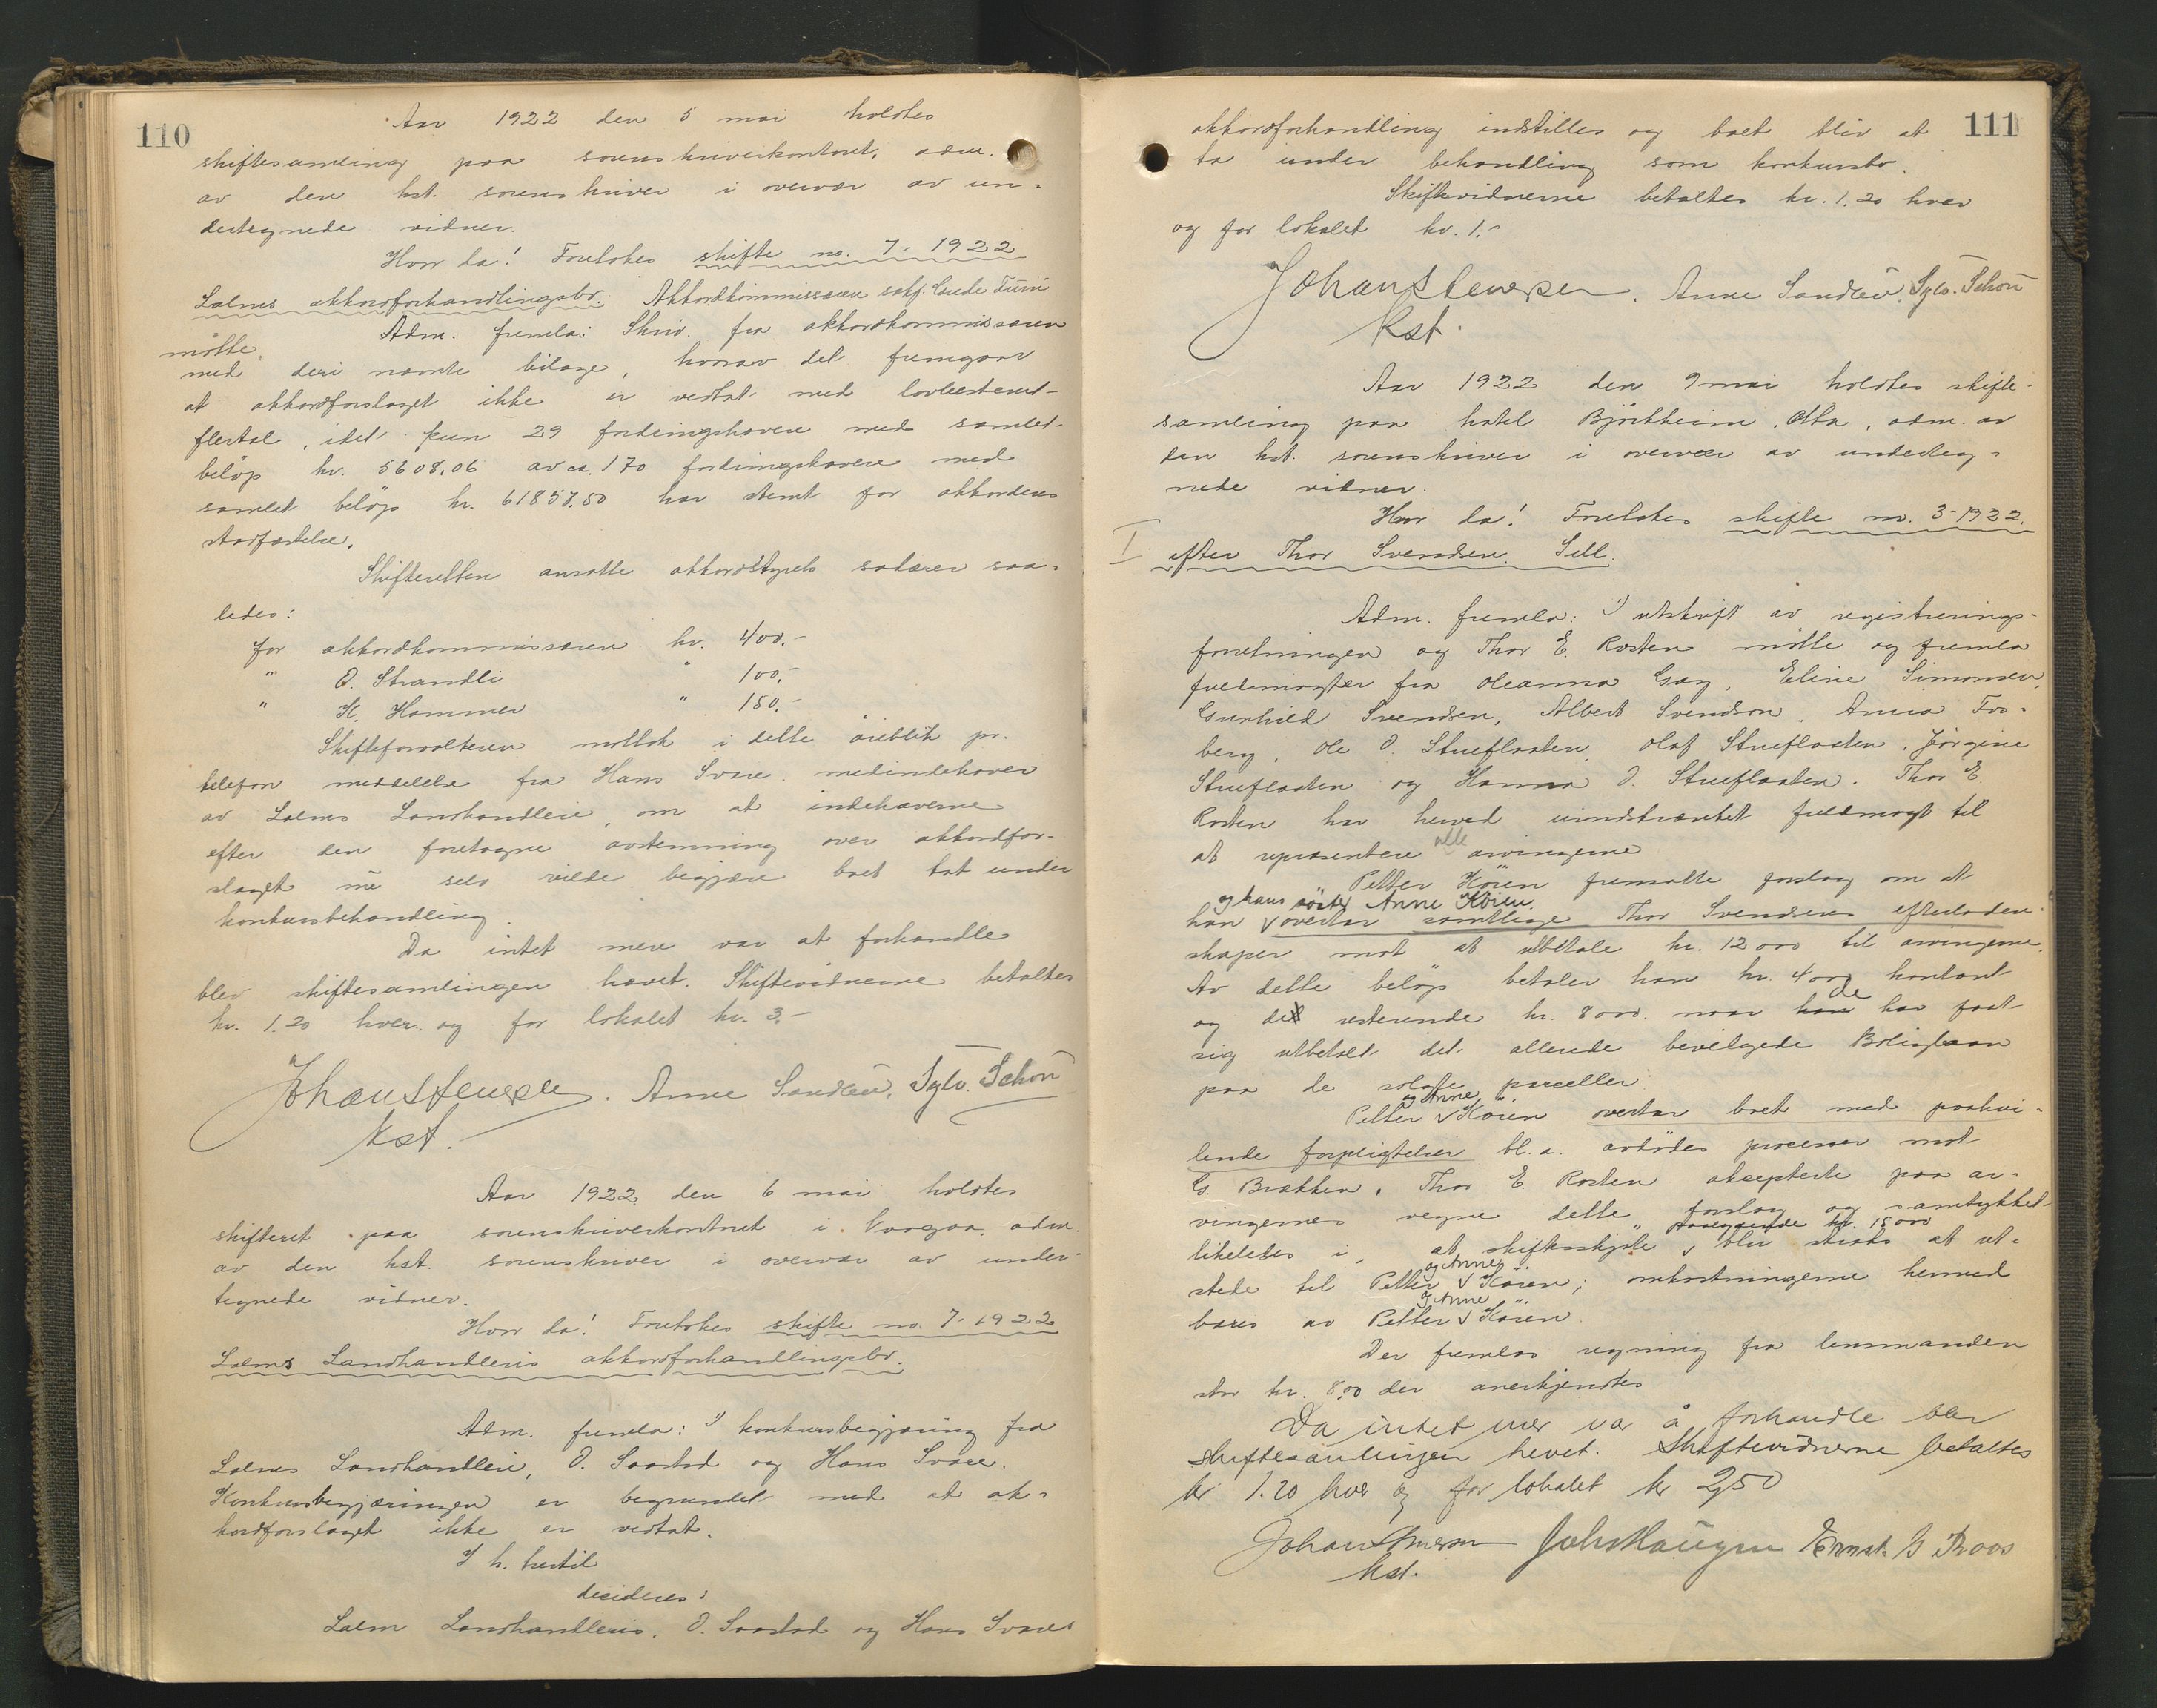 110
Aar 1922 den 5 mai holdtes
skiftesamling paa sorenskriverkontoret, adm.
av den kst. sorenskriver i overvær av un-
dertegnede vidner.
Hvor da! Foretokes skifte no. 7-1922
Lalms akkordforhandlingsbo. Akkordkommissæren sakf.
møtte.
Adm. fremla: Skriv. fra akkordkommissæren
med deri nævnte bilage, hvorav det fremgaar
at akkordforslaget ikke er vedtat med lovbestemt
flertal, idet kun 29 fordringshavere med samlet
beløp kr. 5608,06 av ca. 170 fordringshavere med
samlet beløp kr. 61857,50 har stemt for akkordens
stadfæstelse.
Skifteretten ansatte akkordstyrets salærer saa-
ledes:
for akkordkommissæren kr. 400,-
" O. Strandli " 100,-
" H. Hammer " 150,-
Skifteforvalteren mottok i dette øieblik pr.
telefon meddelelse fra Hans Svare, medindehaver
av Lalms Landhandleri, om at indehaverne
efter den foretagne avstemning over akkordfor-
slaget nu selv vilde begjære boet tat under
konkursbehandling.
Da intet mere var at forhandle
blev skiftesamlingen hævet. Skiftevidnerne betaltes
kr. 1.20 hver og for lokalet kr. 3,-
Johan Stenersen. Anne Sandlie, Sylv. Schou
kst.
Aar 1922 den 6 mai holdtes
skifteret paa sorenskriverkontoret i Vaagaa, adm.
av den kst. sorenskriver i overvær av under-
tegnede vidner.
Hvor da! Foretokes skifte no. 7-1922
Lalms Landhandleris akkordforhandlingsbo.
Adm. fremla: 1) konkursbegjæring fra
Lalms Landhandleri, O. Saastad og Hans Svare.
Konkursbegjæringen er begrundet med at ak-
kordforslaget ikke er vedtat.
I h. hertil
decideres:
Lalm Landhandleris, O. Saastad og Hans Svares
111
akkordforhandling indstilles og boet blir at
ta under behandling som konkursbo.
Skiftevidnerne betaltes kr. 1.20 hver
og for lokalet kr. 1.-
Johan Stenersen. Anne Sandlie, Sylv. Schou
kst.
Aar 1922 den 9 mai holdtes skifte-
samling paa hotel Bjørkheim, Otta, adm. av
den kst. sorenskriver i overvær av underteg-
nede vidner.
Hvor da! Foretokes skifte no. 3-1922.
I efter Thor Svendsen Sell.
Adm. fremla: 1) utskrift av registrerings-
forretningen og Thor E. Rosten møtte og fremla
fuldmagter fra Oleanna Gay, Eline Simonsen,
Gunhild Svendsen, Albert Svendson, Anna Fos-
berg, Ole O. Stueflaaten, Olaf Stueflaaten, Jørgine
Stueflaaten og Hanna O. Stueflaaten. Thor E.
Rosten har herved uindskrænket fuldmagt til
at repræsentere alle arvingerne
Petter Køien fremsatte forslag om at
og hans søster Anne Køien
han overtar samtlige Thor Svendsens efterladen-
skaper mot at utbetale kr. 12000 til arvingerne.
Av dette beløp betaler han kr. 4000 kontant
og de resterende kr. 8000. naar de har faat
sig utbetalt det allerede bevilgede Boliglaan
paa de solgte parceller.
og Anne
Petter Køien overtar boet med paahvi-
lende forpligtelser bl.a. avdødes processer mot
G. Brække. Thor E. Rosten aksepterte paa ar-
vingernes vegne dette forslag og samtykket
paalydende kr. 15000
likeledes i, at skifteskjøte blir straks at ut-
og Anne
stede til Petter Køien; omkostningerne hermed
og Anne
bæres av Petter Køien.
Der fremlas regning fra lensmanden
stor kr. 8,00 der anerkjendtes
Da intet mer var å forhandle blev
skiftesamlingen hevet. Skiftevidnerne betaltes
kr 1.20 hver og for lokalet kr 2,50
Johan Stenersen Joh. Haugen Ernst B Roos
kst.